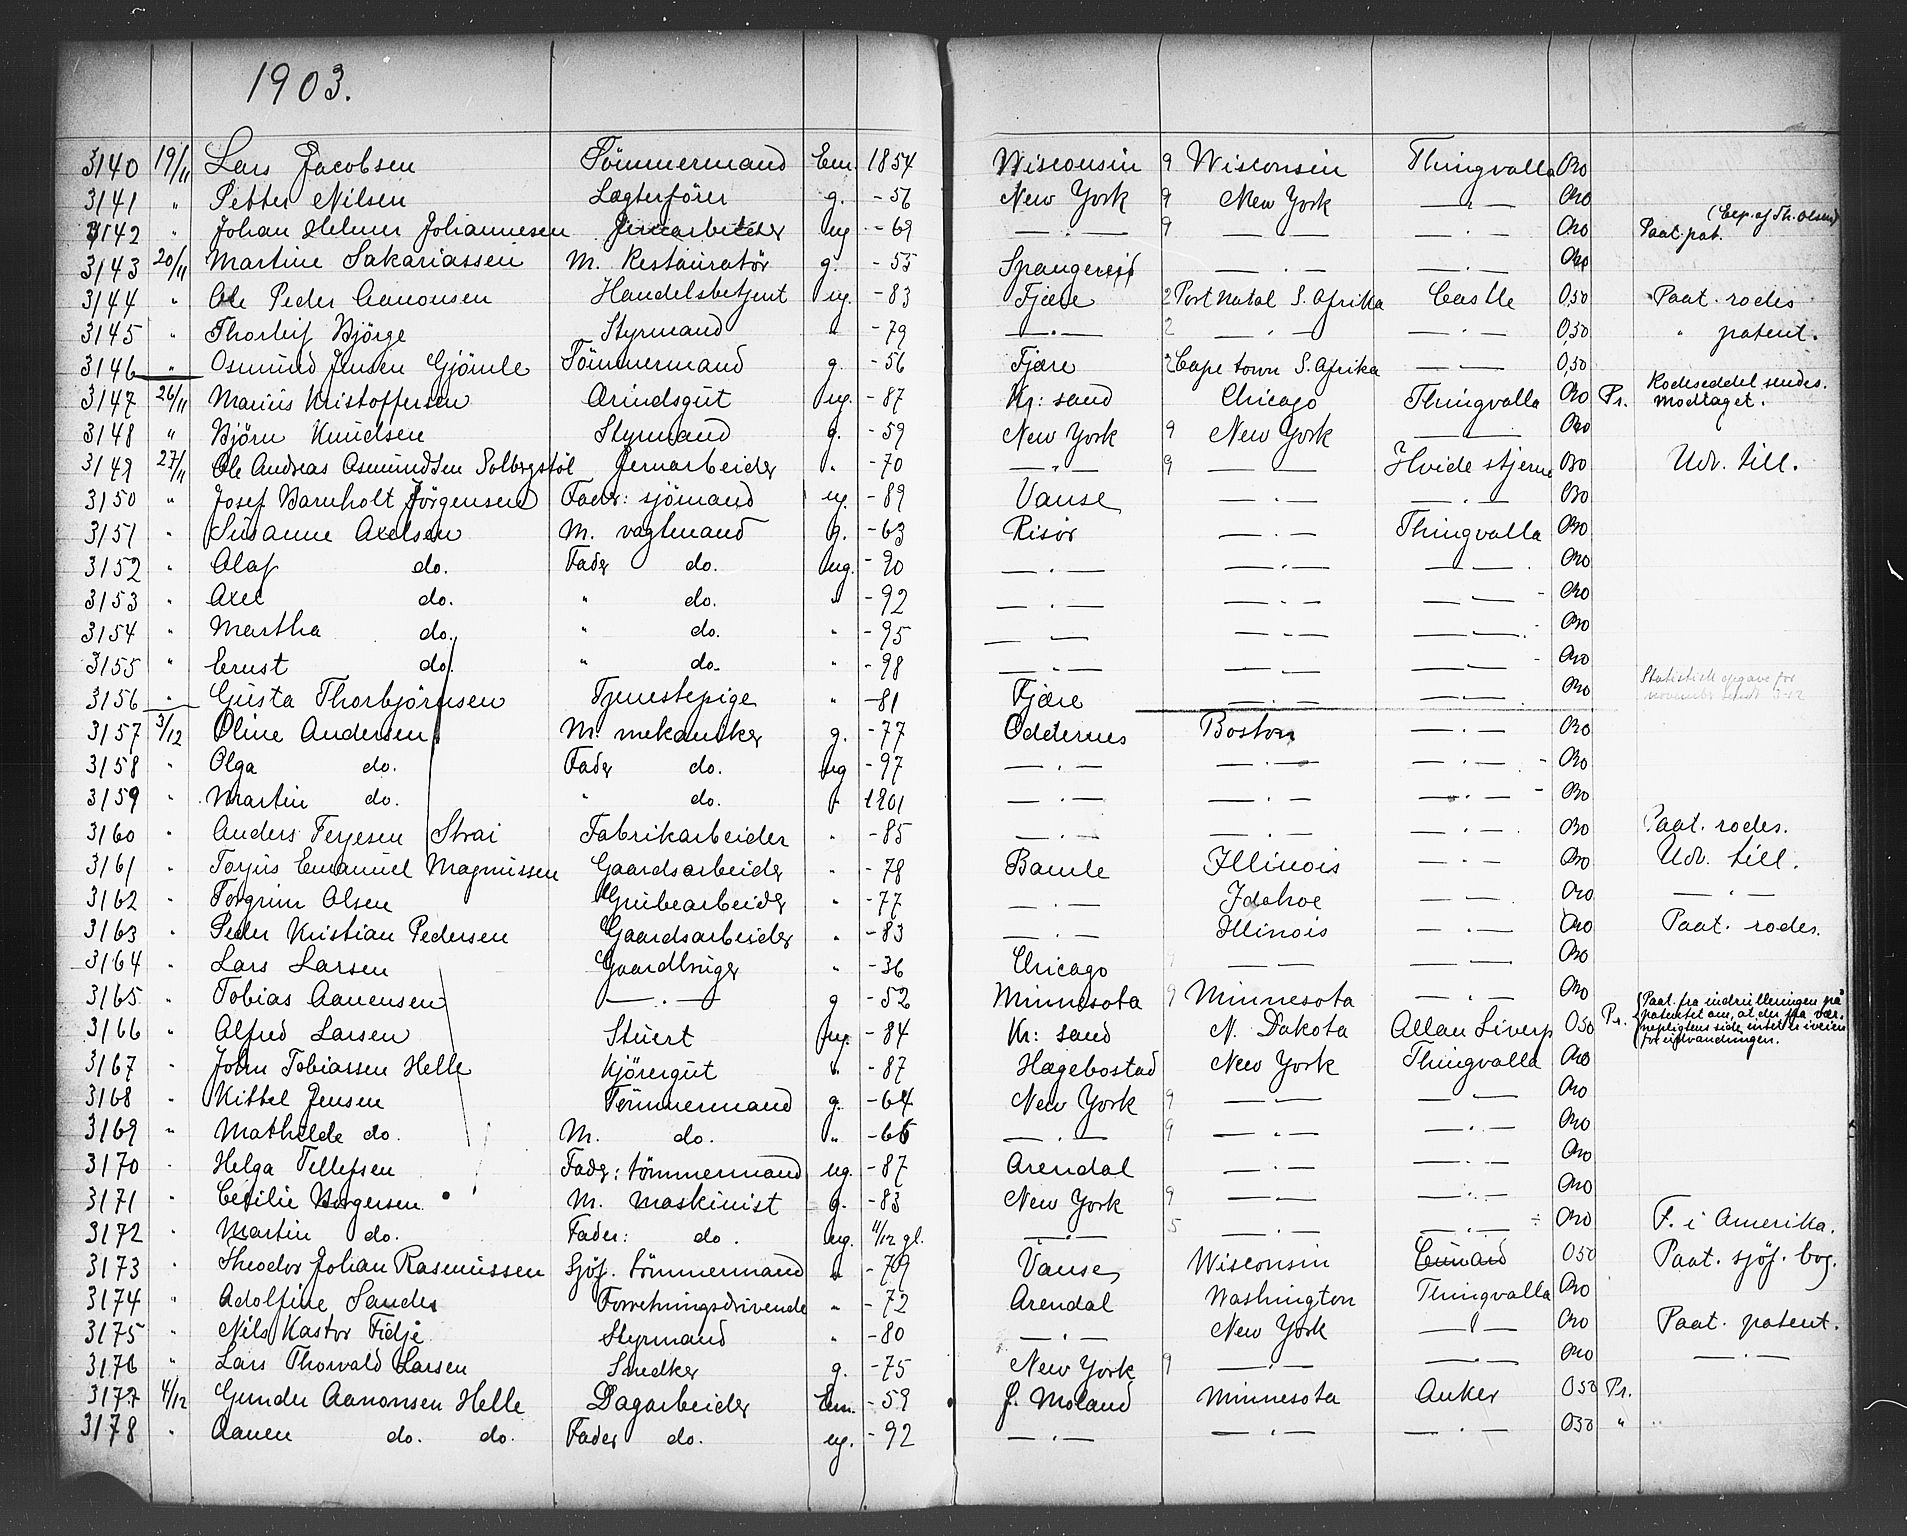 1903.
3140 19/11 Lars Jacobsen Tömmermand Em. 1854 Wisconsin 9 Wisconsin Thingvalla
3141 " Petter Nilsen Lægterförer g. -56 New York 9 New York —"—
3142 " Johan Helmer Johannesen Jernarbeider ug -69 —"— 9 —"— —"— Paat. pat.
3143 20/11 Martine Sakariassen M. Restauratør g. -55 Spangereid —"— —"—
3144 " Ole Peder Aanonsen Handelsbetjent ug. -83 Fjære 2 Port Natal S. Afrika Castle 0,50 Paat. rodes
3145 " Thorleif Björge Styrmand " -79 —"— 2 —"— —"— 0,50 " patent.
3146 " Osmund Jensen Gjömle Tömmermand g. -56 Fjære 2 Cape town S. Afrika —"— 0,50
3147 26/11 Marius Kristoffersen Ærindsgut ug. -87 Kr: sand Chicago Thingvalla Pr. Rodeseddel sendes. modtaget.
3148 " Björn Knudsen Styrmand g. -59 New York 9 New York ——
3149 27/11 Ole Andreas Osmundsen Solbergstöl Jernarbeider " -70 —"— 9 —— Hvide stjerne Udv. till.
3150 " Josef Barnholt Jörgensen Fader: sjömand ug. -89 Vanse —"— —"—
3151 " Susanne Axelsen M. vagtmand g. -63 Risör —"— Thingvalla
3152 " Olaf do. Fader do. ug. -90 —"— —"— —"—
3153 " Axel do. " do. " -92 —"— —"— —"—
3154 " Martha do. " do. " -95 —— —"— —"—
3155 " Ernst do. " do. " -98 —"— —"— —"—
3156 " Gusta Thorbjörnsen Tjenestepige " -81 Fjære —"— —"— Statistisk opgave for november sendt 3-12
3157 3/12 Oline Andersen M. mekaniker g. -77 Oddernes Boston —"—
3158 " Olga do. Fader do. ug -97 —"— —"— —"—
3159 " Martin do. " do. " 1901 —"— —"— —"—
3160 " Anders Terjesen Strai Fabrikarbeider " -85 —"— —"— —"— Paat. rodes.
3161 " Torjus Emanuel Magnussen Gaardsarbeider " -78 Bamle Illinois —"— Udv. till.
3162 " Torgrim Olsen Grubearbeider " -77 —"— Idahoe —"— —"—
3163 " Peder Kristian Pedersen Gaardsarbeider " -83 —"— Illinois —"— Paat. rodes.
3164 " Lars Larsen Gaardbruger " -36 Chicago —— ——
3165 " Tobias Aanensen —"— g -52 Minnesota 9 Minnesota —"—
3166 " Alfred Larsen Stuert ug. -84 Kr: sand N. Dakota Allan Liverp 0 50 Pr. Paat. fra indrulleringen på patentet om, at der fra værnepligtens side intet er iveien for udvandringen.
3167 " John Tobiassen Helle Kjöregut " -87 Hægebostad New York Thingvalla
3168 " Kittel Jensen Tömmermand g. -64 New York 9 —— ——
3169 " Mathilde do. M. do. " -65 —"— 9 —"— —"—
3170 " Helga Tellefsen Fader: tömmermand ug. -87 Arendal —"— —"—
3171 " Cecilie Borgersen M. maskinist g. -83 New York 9 —— —"—
3172 " Martin do. Fader: do. ug. 4/12 gl. —"— 5 —"— —"— F. i Amerika.
3173 " Theodor Johan Rasmussen Sjöf. tömmermand " -79 Vanse Wisconsin Cunard 0 50 Paat. sjöf. bog.
3174 " Adolfine Sandes Forretningsdrivende " -72 Arendal Washington Thingvalla
3175 " Nils Kastor Fidje Styrmand " -80 —"— New York —"— Paat. patent.
3176 " Lars Thorvald Larsen Snedker g. -75 New York 9 —"— —"— —"—
3177 4/12 Gunder Aanonsen Helle Dagarbeider Em. -59 Ö. Moland Minnesota Anker 0 50 Pr.
3178 " Aanen do. do. Fader do. ug. -92 —"— —"— —"— 0 50 " "